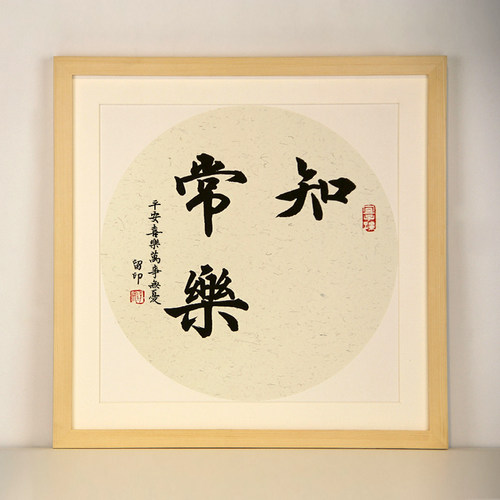 知
常樂
平安喜樂萬事無憂
留印